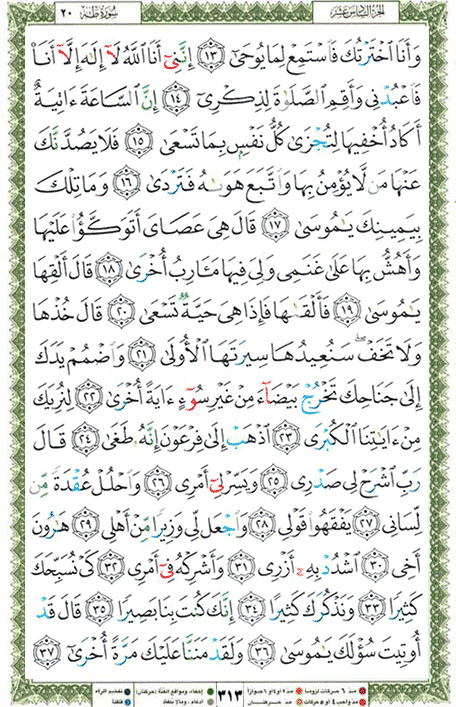 سُورَةُ طه ٢٠
الجزء السادس عشر
وَأَنَا ٱخْتَرْتُكَ فَٱسْتَمِعْ لِمَا يُوحَىٰٓ ١٣ إِنَّنِىٓ أَنَا ٱللَّهُ لَآ إِلَٰهَ إِلَّآ أَنَا۠
فَٱعْبُدْنِى وَأَقِمِ ٱلصَّلَوٰةَ لِذِكْرِىٓ ١٤ إِنَّ ٱلسَّاعَةَ ءَاتِيَةٌ
أَكَادُ أُخْفِيهَا لِتُجْزَىٰ كُلُّ نَفْسٍۭ بِمَا تَسْعَىٰ ١٥ فَلَا يَصُدَّنَّكَ
عَنْهَا مَن لَّا يُؤْمِنُ بِهَا وَٱتَّبَعَ هَوَىٰهُ فَتَرْدَىٰ ١٦ وَمَا تِلْكَ
بِيَمِينِكَ يَٰمُوسَىٰ ١٧ قَالَ هِىَ عَصَاىَ أَتَوَكَّؤُا۟ عَلَيْهَا
وَأَهُشُّ بِهَا عَلَىٰ غَنَمِى وَلِىَ فِيهَا مَـَٔارِبُ أُخْرَىٰ ١٨ قَالَ أَلْقِهَا
يَٰمُوسَىٰ ١٩ فَأَلْقَىٰهَا فَإِذَا هِىَ حَيَّةٌ تَسْعَىٰ ٢٠ قَالَ خُذْهَا
وَلَا تَخَفْ ۖ سَنُعِيدُهَا سِيرَتَهَا ٱلْأُولَىٰ ٢١ وَٱضْمُمْ يَدَكَ
إِلَىٰ جَنَاحِكَ تَخْرُجْ بَيْضَآءَ مِنْ غَيْرِ سُوٓءٍ ءَايَةً أُخْرَىٰ ٢٢ لِنُرِيَكَ
مِنْ ءَايَٰتِنَا ٱلْكُبْرَى ٢٣ ٱذْهَبْ إِلَىٰ فِرْعَوْنَ إِنَّهُۥ طَغَىٰ ٢٤ قَالَ
رَبِّ ٱشْرَحْ لِى صَدْرِى ٢٥ وَيَسِّرْ لِىٓ أَمْرِى ٢٦ وَٱحْلُلْ عُقْدَةً مِّن
لِّسَانِى ٢٧ يَفْقَهُوا۟ قَوْلِى ٢٨ وَٱجْعَل لِّى وَزِيرًا مِّنْ أَهْلِى ٢٩ هَٰرُونَ
أَخِى ٣٠ ٱشْدُدْ بِهِۦٓ أَزْرِى ٣١ وَأَشْرِكْهُ فِىٓ أَمْرِى ٣٢ كَىْ نُسَبِّحَكَ
كَثِيرًا ٣٣ وَنَذْكُرَكَ كَثِيرًا ٣٤ إِنَّكَ كُنتَ بِنَا بَصِيرًا ٣٥ قَالَ قَدْ
أُوتِيتَ سُؤْلَكَ يَٰمُوسَىٰ ٣٦ وَلَقَدْ مَنَنَّا عَلَيْكَ مَرَّةً أُخْرَىٰٓ ٣٧
مد ٦ حركات لزوما مد ٢ او ٤ او ٦ جوازا إخفاء، ومواقع الغنة (حركتان) تفخيم الراء
مد واجب ٤ او ٥ حركات مد حركتان ادغام، ومالا يلفظ قلقلة
٣١٣